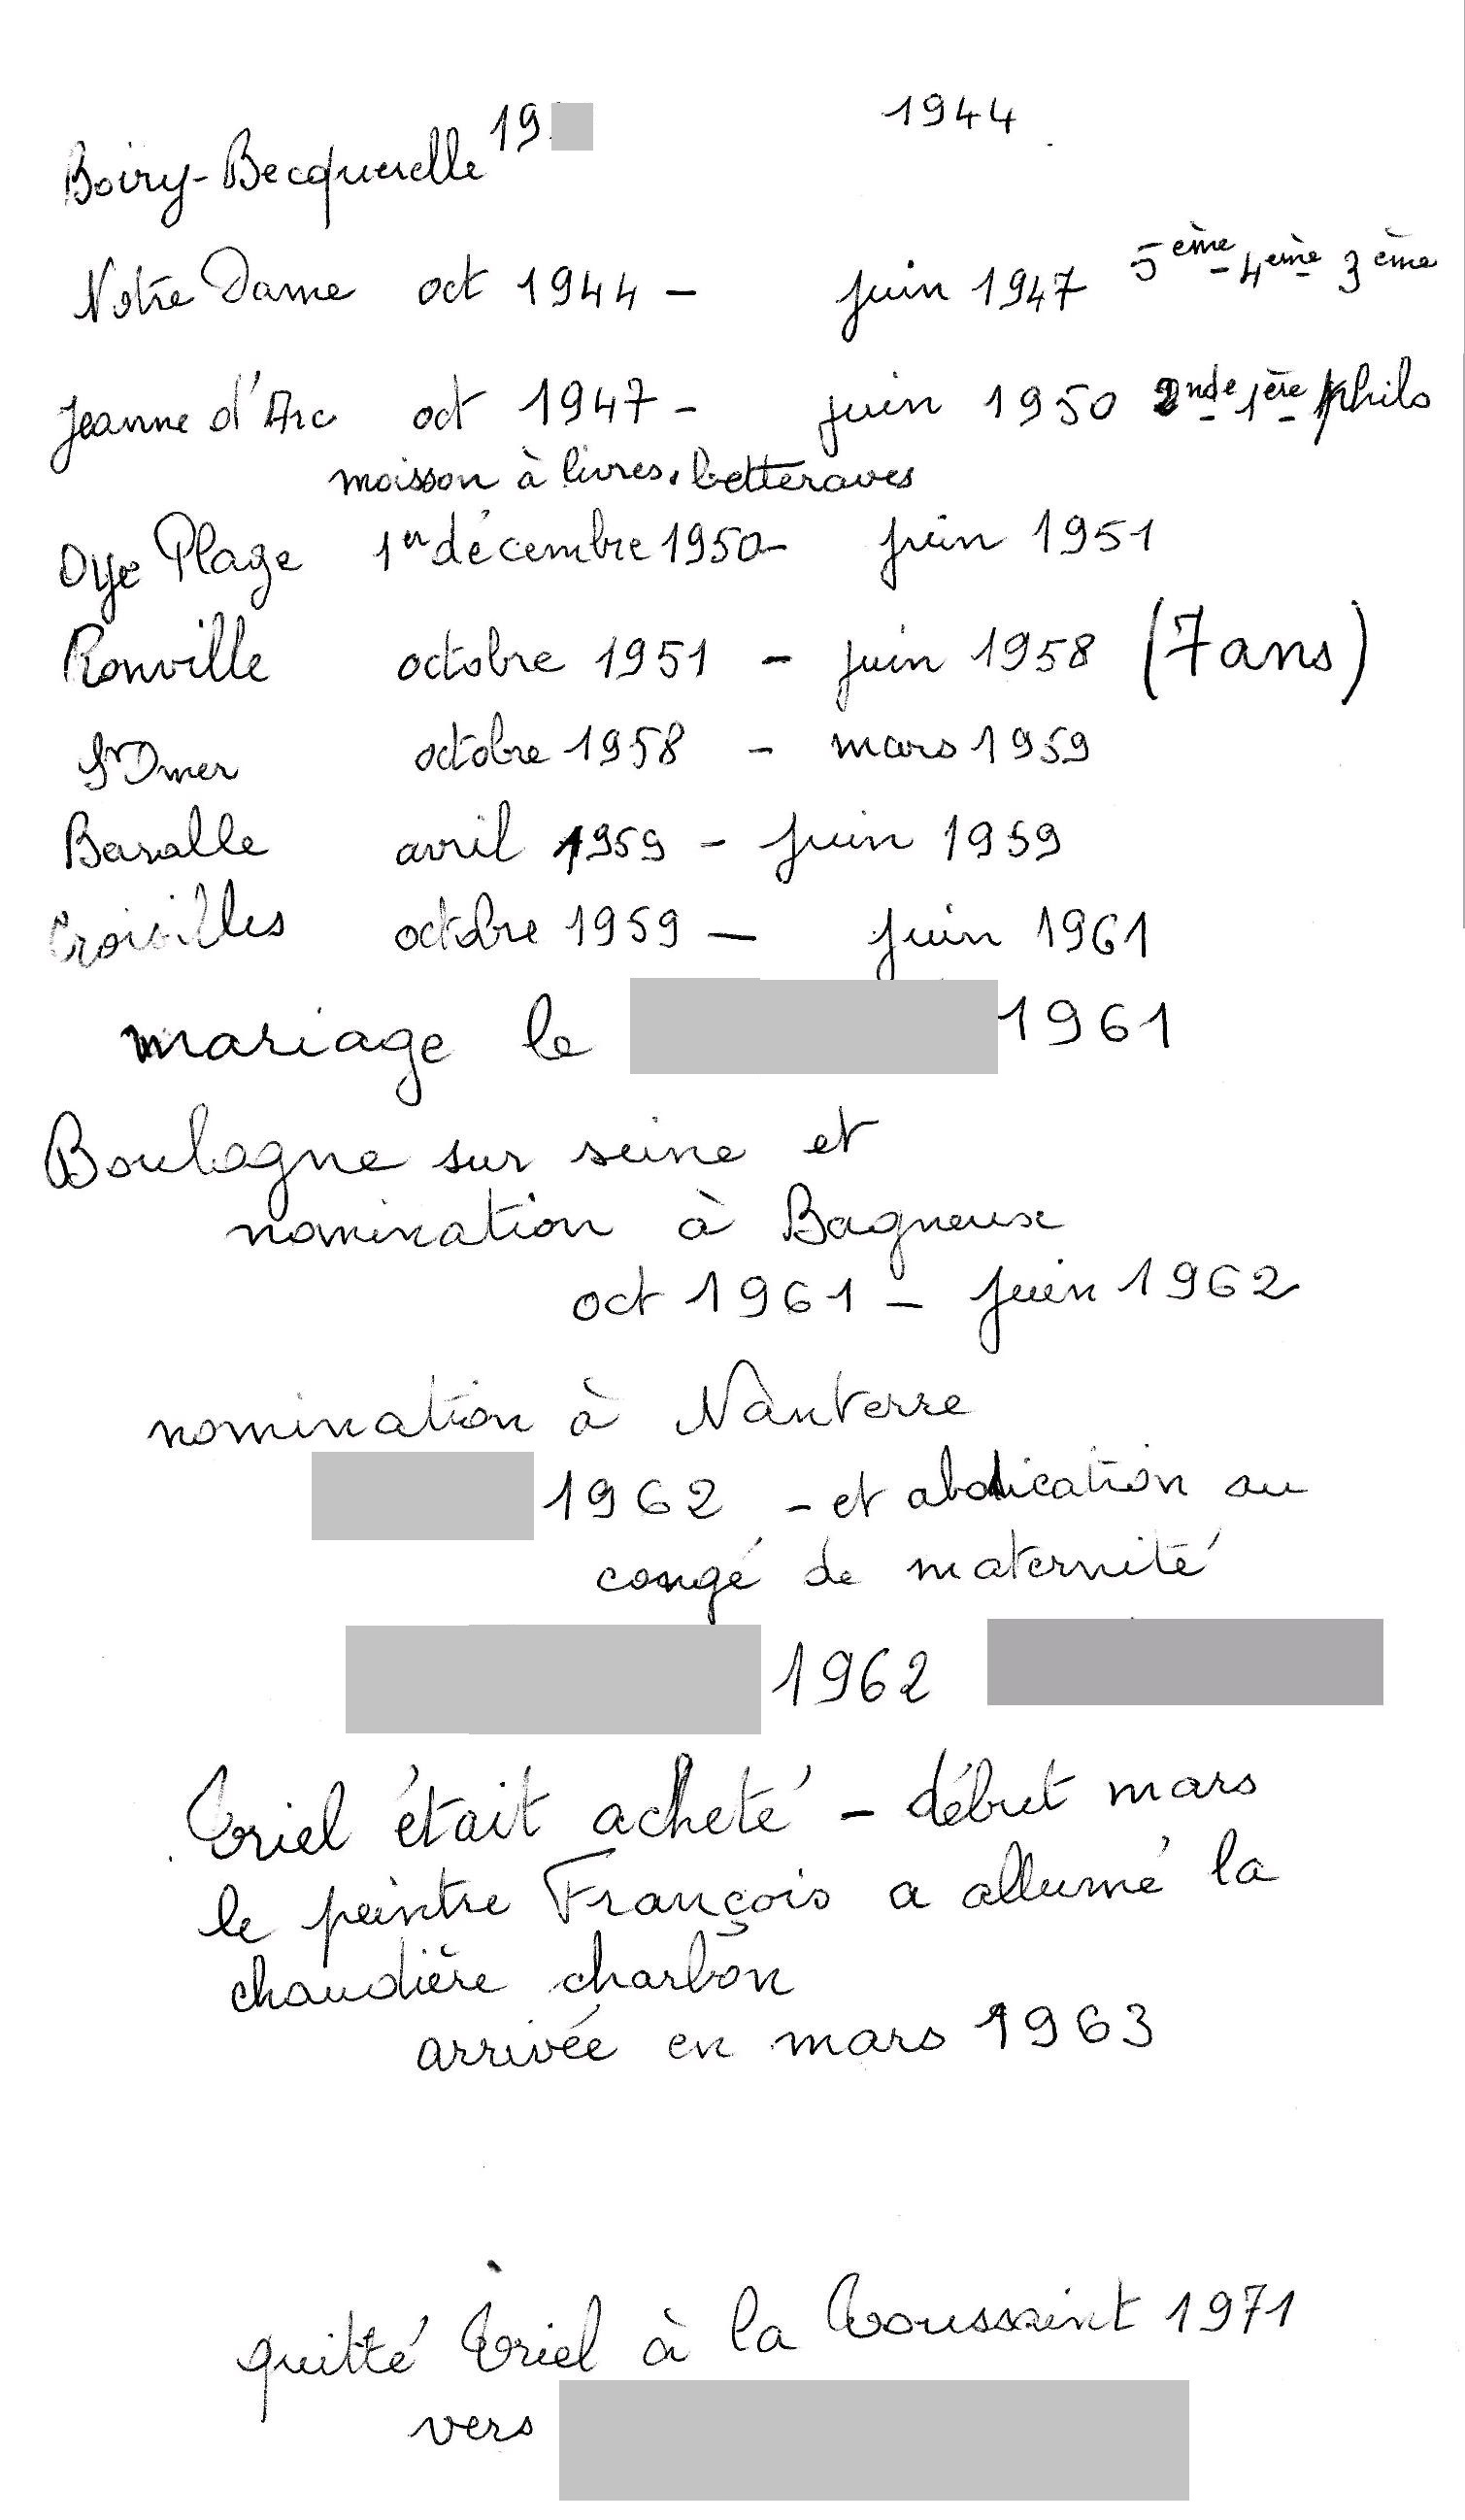 Boiry-Becquerelle 19 1944
Notre Dame oct 1944 - juin 1947 5ème - 4ème - 3ème
Jeanne d'Arc oct 1947 - juin 1950 2nde - 1ère - philo
moisson à livres. betteraves
Oye Plage 1er décembre 1950 - juin 1951
Ronville octobre 1951 - juin 1958 (7 ans)
St Omer octobre 1958 - mars 1959
Baralle avril 1959 - juin 1959
Croisilles octobre 1959 - juin 1961
mariage le 1961
Boulogne sur seine et
nomination à Bagneux
oct 1961 - juin 1962
nomination à Nanterre
1962 - et abdication au
congé de maternité
1962
Triel était acheté - début mars
le peintre François a allumé la
chaudière charbon
arrivée en mars 1963
quitté Triel à la Toussaint 1971
vers